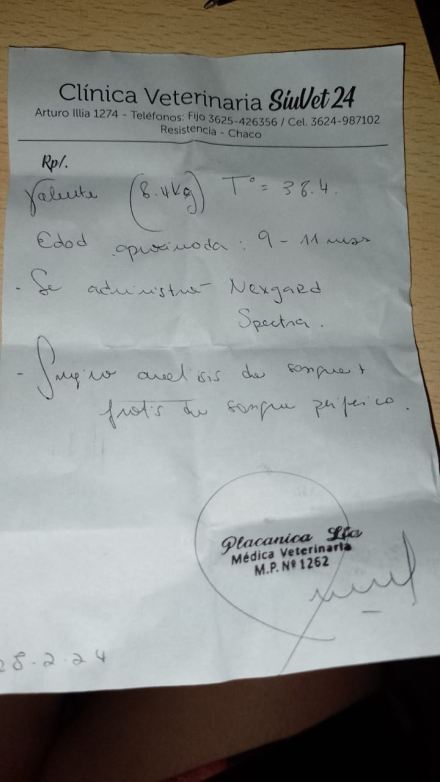 Clínica Veterinaria SiuVet 24
Arturo Illia 1274 - Teléfonos: Fijo 3625-426356 / Cel. 3624-987102
Resistencia - Chaco
Rp/.
Valente (8.4Kg) T° = 38.4.
Edad aproximada: 9 - 11 meses
- Se administró Nexgard
Spectra.
- Sugiero analisis de sangre +
frotis de sangre periferico.
Placanica
Médica Veterinaria
M.P. Nº 1262
28.2.24